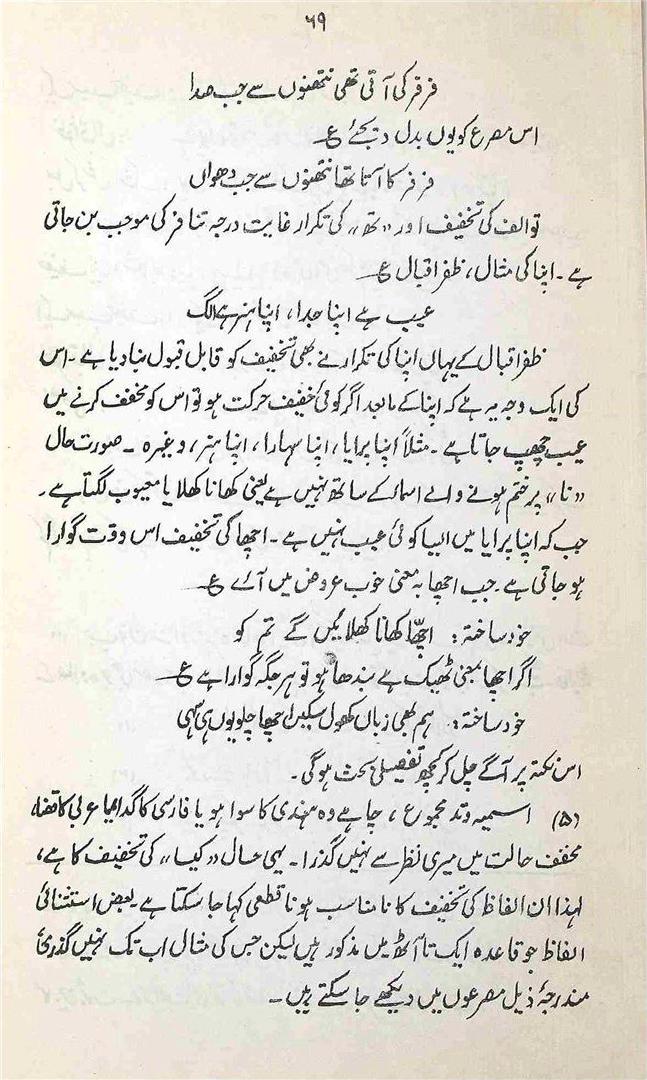 ۶۹
فرفر کی آتی تھی نتھنوں سے جب صدا
اس مصرع کو یوں بدل دیجئے ع
فرفر کا آتا تھا نتھنوں سے جب دھواں
تو الف کی تخفیف اور «تھ» کی تکرار غایت درجہ تنافر کی موجب بن جاتی
ہے۔ اپنا کی مثال، ظفر اقبال ع
عیب ہے اپنا جدا، اپنا ہنر ہے الگ
ظفر اقبال کے یہاں اپنا کی تکرار نے بھی تخفیف کو قابل قبول بنا دیا ہے۔ اس
کی ایک وجہ یہ ہے کہ اپنا کے مابعد اگر کوئی خفیف حرکت ہو تو اس کو مخفف کرنے میں
عیب چھپ جاتا ہے۔ مثلاً اپنا پرایا، اپنا سہارا، اپنا ہنر، وغیرہ۔ صورت حال
«نا» پر ختم ہونے والے اسماء کے ساتھ نہیں ہے یعنی کھانا کھلایا معیوب لگتا ہے۔
جب کہ اپنا پرایا میں ایسا کوئی عیب نہیں ہے۔ اچھا کی تخفیف اس وقت گوارا
ہو جاتی ہے۔ جب اچھا بہ معنی خوب عروض میں آئے ع
خود ساختہ: اچھّا کھانا کھلائیں گے تم کو
اگر اچھا بمعنی ٹھیک ہے بندھا ہو تو ہر جگہ گوارا ہے ع
خود ساختہ: ہم بھی زباں کھول سکیں اچھا چلو یوں ہی سہی
اس نکتہ پر آگے چل کر کچھ تفصیلی بحث ہوگی۔
(۵) اسمیہ وتد مجموع، چاہے وہ ہندی کا سوا ہو یا فارسی کا گدا یا عربی کا قضا،
مخفف حالت میں میری نظر سے نہیں گذرا۔ یہی حال «کیا» کی تخفیف کا ہے،
لہذا ان الفاظ کی تخفیف کا نامناسب ہونا قطعی کہا جا سکتا ہے۔ بعض استثنائی
الفاظ جو قاعدہ ایک تا آٹھ میں مذکور ہیں لیکن جس کی مثال اب تک نہیں گذری
مندرجۂ ذیل مصرعوں میں دیکھے جا سکتے ہیں۔